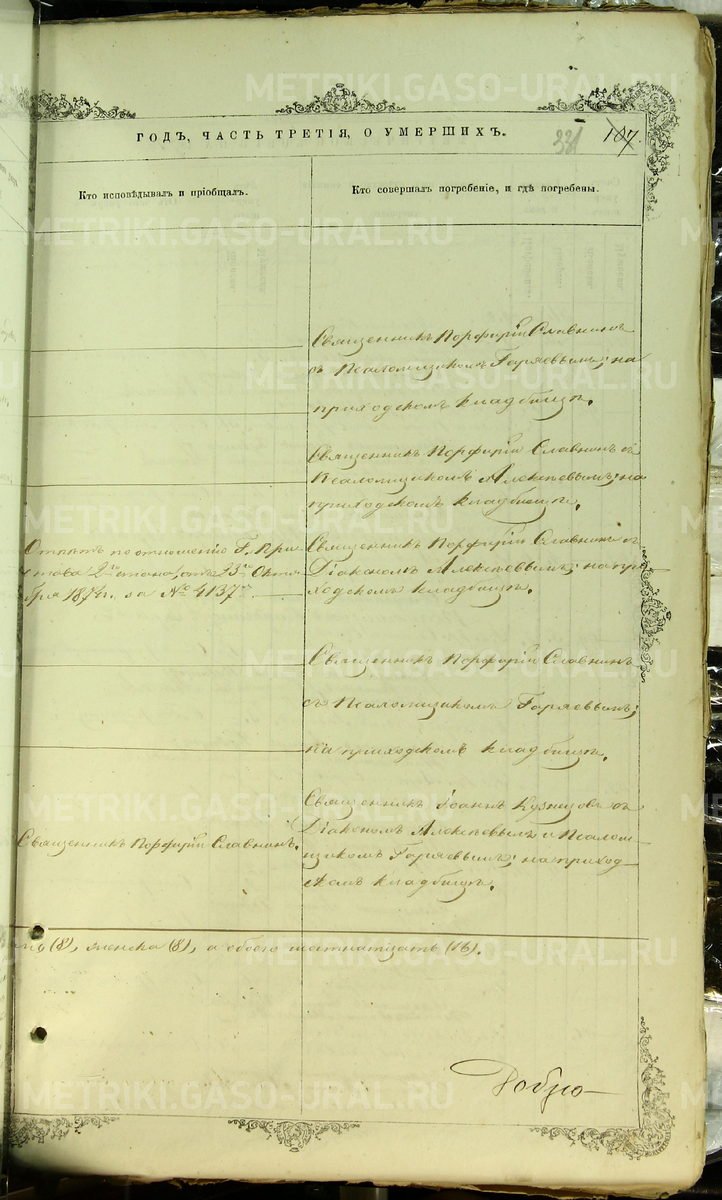 ГОДЪ, ЧАСТЬ ТРЕТІЯ, О УМЕРШИХЪ.
331
107.
Кто исповѣдывалъ и пріобщалъ.
Кто совершалъ погребеніе, и гдѣ погребены.
Священникъ Порфирій Славнинъ
съ Псаломщикомъ Горяевымъ; на
приходскомъ кладбищѣ.
Священникъ Порфирій Славнинъ съ
Псаломщикомъ Алексѣевымъ; на
приходскомъ кладбищѣ.
Отпѣтъ по отношенію Г. При-
става 2го стана, отъ 23го Октя-
бря 187 г. за № 4137м.
Священникъ Порфирій Славнинъ съ
Діакономъ Алексѣевымъ; на при-
ходскомъ кладбищѣ.
Священникъ Порфирій Славнинъ
съ Псаломщикомъ Горяевымъ;
на приходскомъ кладбищѣ.
Священникъ Порфирій Славнинъ.
Священникъ Іоаннъ Кузнецовъ съ
Діакономъ Алексѣевымъ и Псалом-
щикомъ Горяевымъ; на приход-
скомъ кладбищѣ.
(8), женска (8), а обоего шестнатцать (16).
METRIKI.GASO-URAL.RU